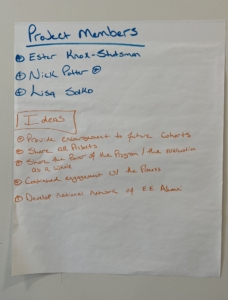 Project Members
Ester Knox-Stutsman
Nick Potter
Lisa Sotko
Ideas
Provide encouragement to future Cohorts
Share all Projects
Share the Power of the Program / the
as a whole
Continued engagement w/ the
Develop national network of E.E. Alumni